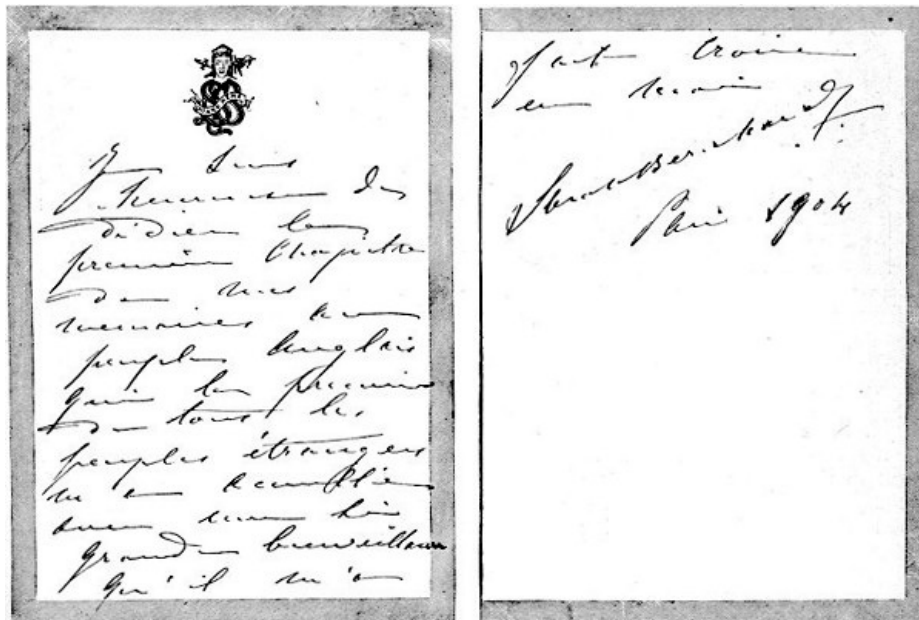 Je suis
heureuse de
dédier le
premier Chapitre
de mes
memoires au
peuple Anglais
qui le premier
de tous les
peuples étrangers
m'a accueillie
avec une si
grande bienveillance
qu'il m'a
fait croire
en moi
Sarah Bernhardt
Paris 1904